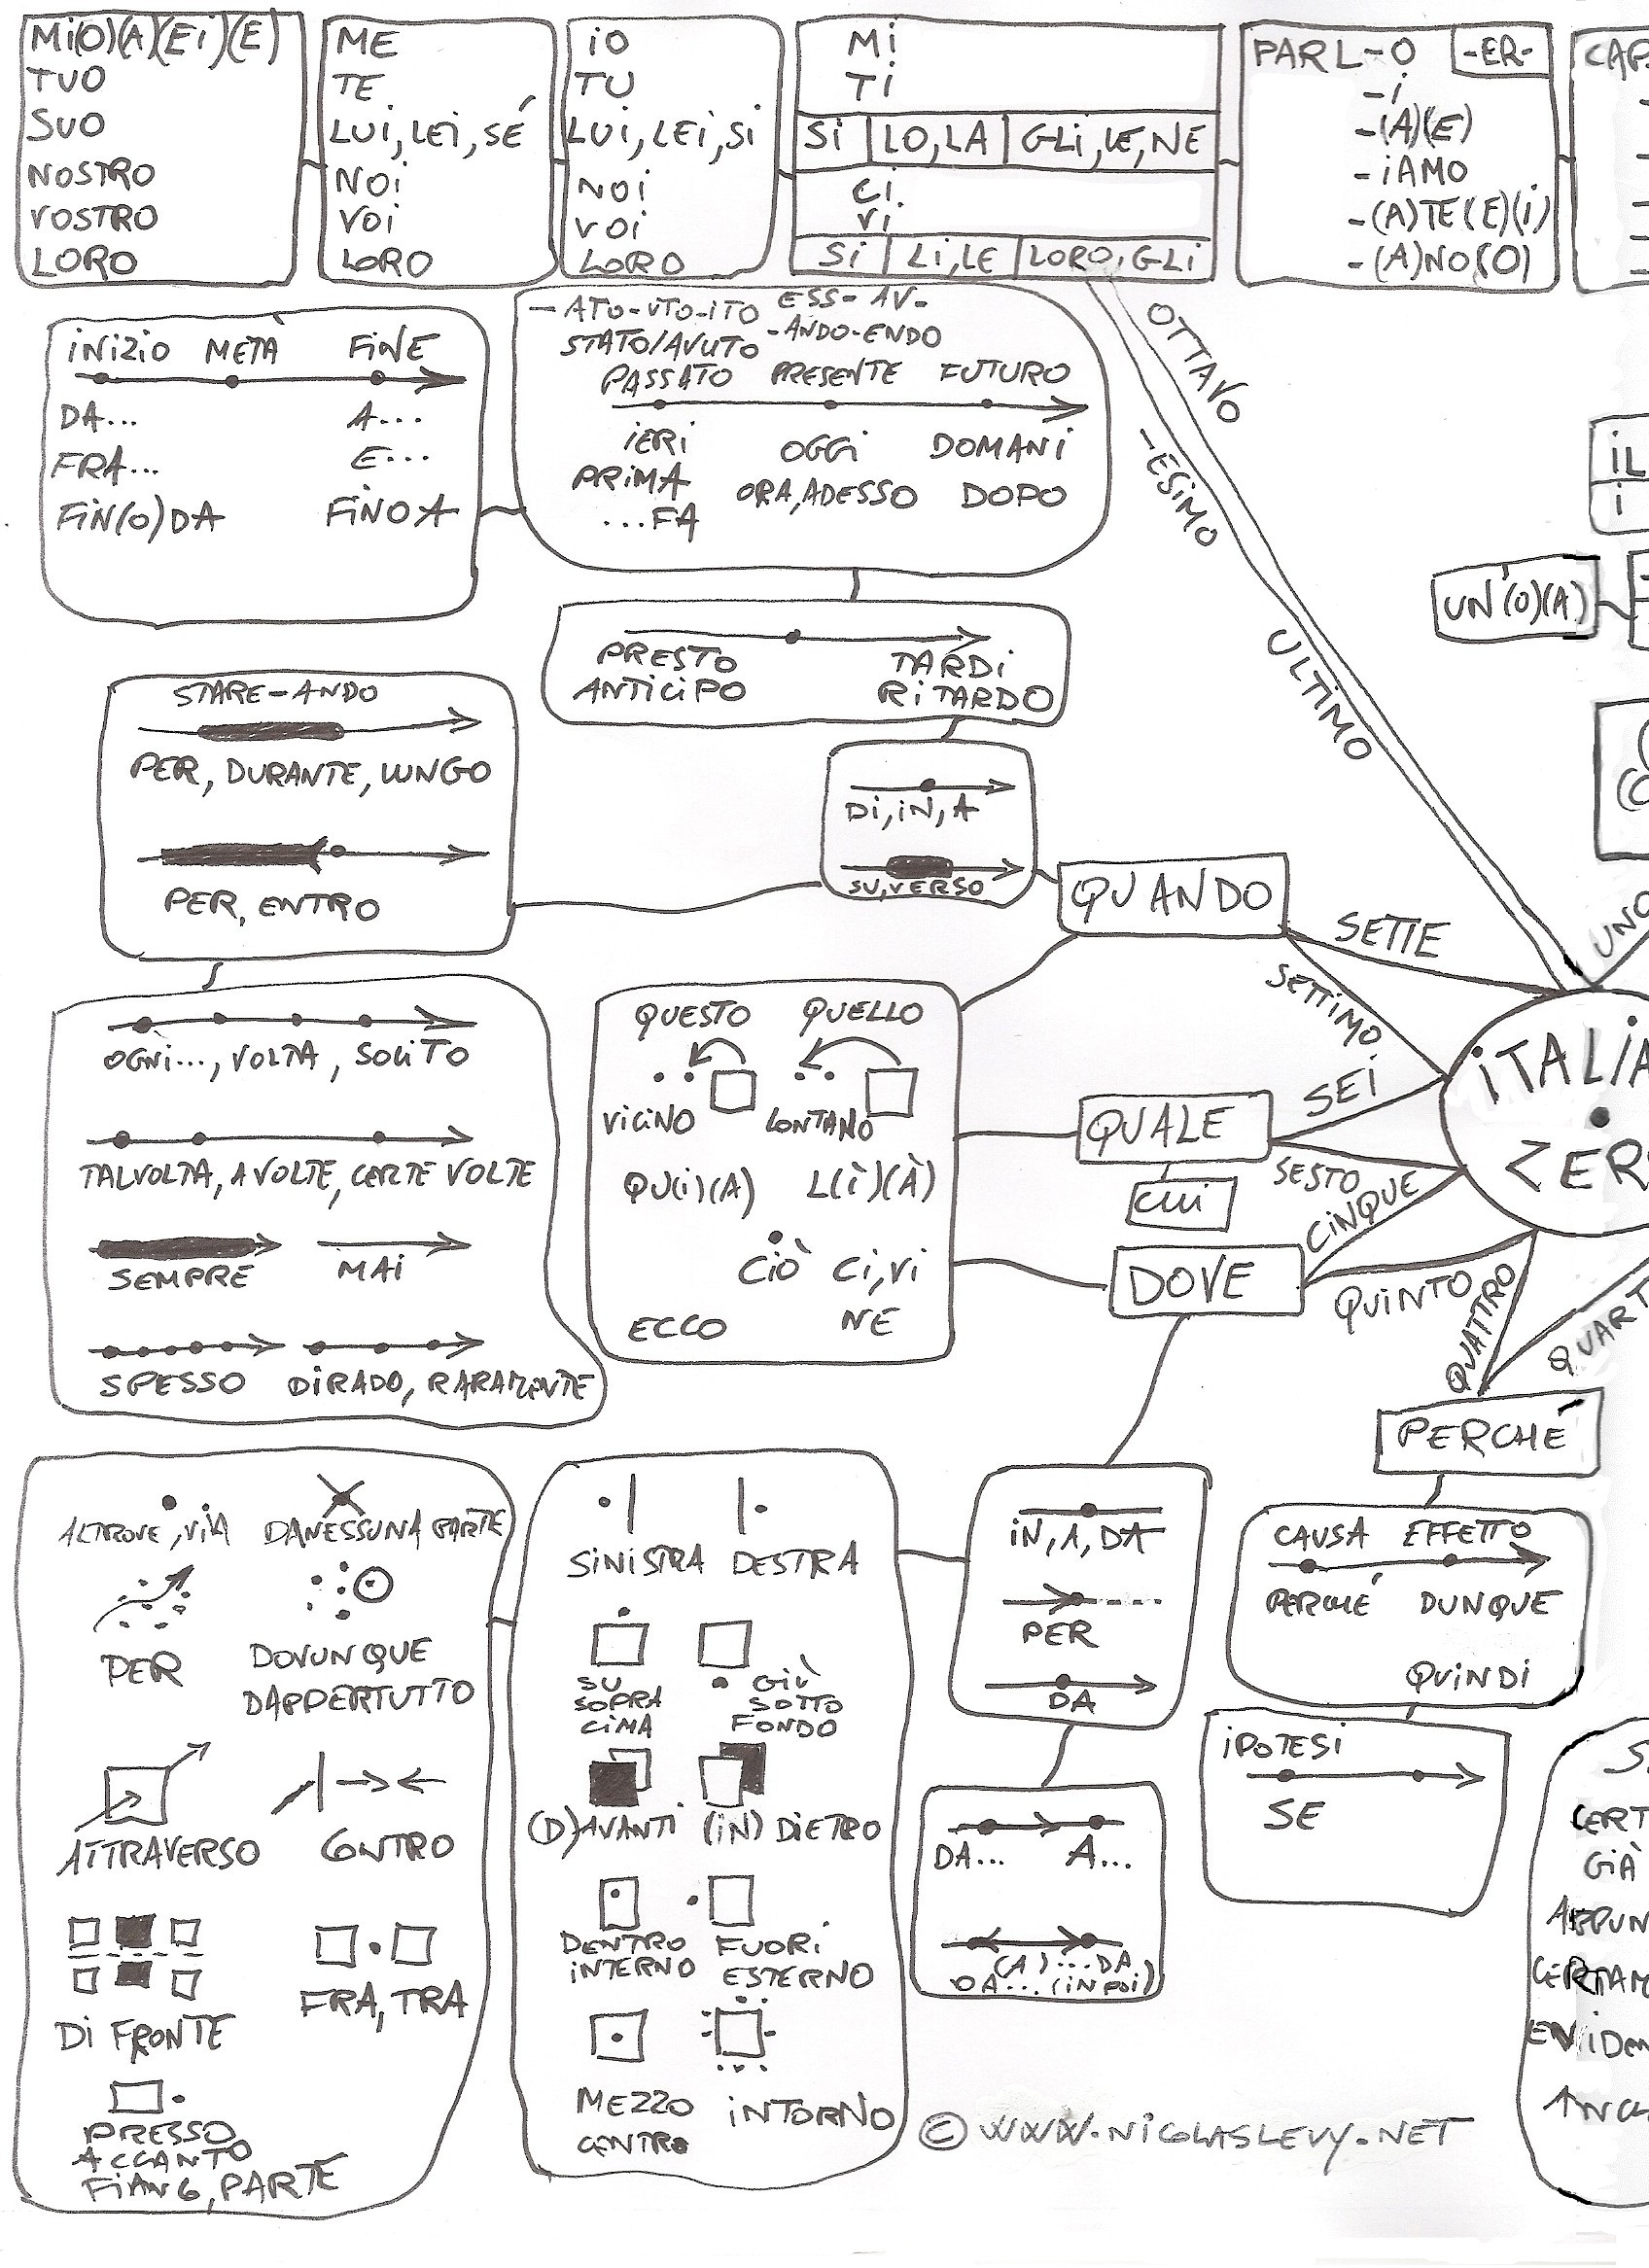 Mi(O)(A)(Ei)(E)
TUO
SUO
NOSTRO
VOSTRO
LORO
ME
TE
LUi, LEi, SÉ
NOi
VOi
LORO
iO
TU
LUi, LEi, Si
NOi
VOi
LORO
Mi
Ti
Si LO, LA GLi, LE, NE
Ci
Vi
Si Li, LE LORO, GLi
PARL-O -ER-
-i
-(A)(E)
-iAMO
-(A)TE(E)(i)
-(A)NO(O)
iNiZiO METÀ FiNE
DA... A...
FRA... E...
FiN(O)DA FiNO A
-ATO-UTO-iTO ESS-AV-
STATO/AVUTO -ANDO-ENDO
PASSATO PRESENTE FUTURO
iERi OGGi DOMANi
PRiMA ORA, ADESSO DOPO
...FA
OTTAVO
-ESiMO
ULTiMO
iL
i
UN'(O)(A)
PRESTO TARDi
ANTiCiPO RiTARDO
STARE-ANDO
PER, DURANTE, LUNGO
PER, ENTRO
Di, iN, A
SU, VERSO
QUANDO
SETTE
SETTiMO
UNO
OGNi..., VOLTA, SOLiTO
TALVOLTA, A VOLTE, CERTE VOLTE
SEMPRE MAi
SPESSO Di RADO, RARAMENTE
QUESTO QUELLO
ViCiNO LONTANO
QU(i)(A) L(Ì)(À)
CiÒ Ci, Vi
ECCO NE
QUALE
CUi
SEi
SESTO
DOVE
CiNQUE
QUiNTO
QUATTRO
QUART
iTALiA
ZER
PERCHÉ
CAUSA EFFETTO
PERCHÉ DUNQUE
QUiNDi
iPOTESi
SE
ALTROVE, ViA DA NESSUNA PARTE
PER DOVUNQUE
DAPPERTUTTO
ATTRAVERSO CONTRO
Di FRONTE FRA, TRA
PRESSO
ACCANTO
FiANCO, PARTE
SiNiSTRA DESTRA
SU GiÙ
SOPRA SOTTO
CiMA FONDO
(D)AVANTi (iN)DiETRO
DENTRO FUORi
iNTERNO ESTERNO
MEZZO iNTORNO
CENTRO
iN, A, DA
PER
DA
DA... A...
(A)...DA
DA...(iN POi)
CERT
GiÀ
APPUN
CERTAM
EViDEN
ANCH
© WWW.NiCOLASLEVY.NET